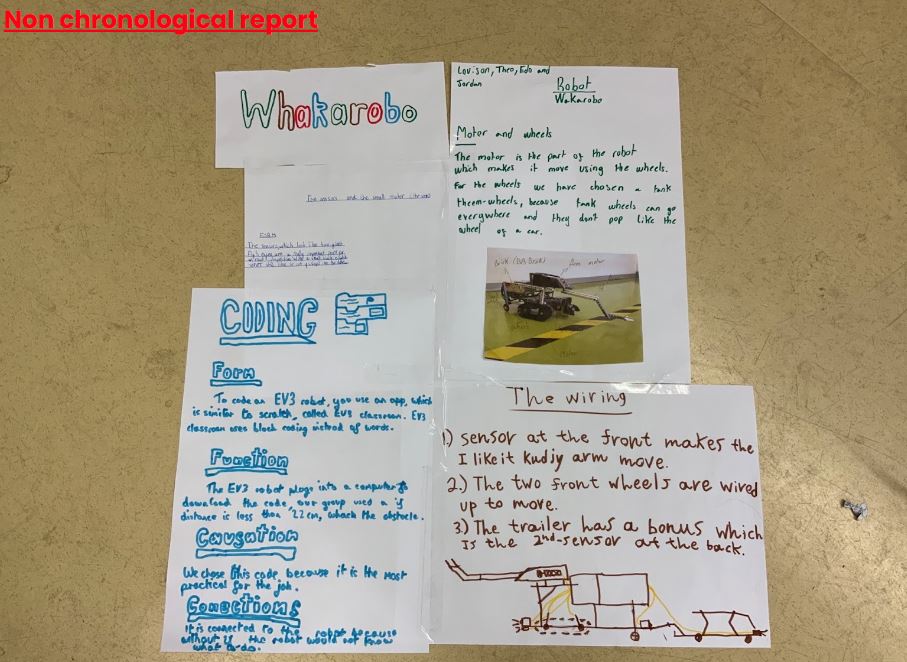 Non chronological report
Whakarobo
Lovison, Theo, Edo and
Jordan
Robot
Wakarobo
Motor and wheels
The motor is the part of the robot
which makes it move using the wheels.
For the wheels we have chosen a tank
theem-wheels, because tank wheels can go
everywhere and they don't pop like the
wheel of a car.
Brick (EV3 Brick)
Arm motor
and the small motor
The sensors, which look like two
CODING
Form
To code an EV3 robot, you use an app, which
is similar to scratch, called EV3 classroom. EV3
classroom uses block coding instead of words.
Function
The EV3 robot plugs into a computer to
download the code, our group used a if
distance is less than 22cm, whack the obstacle.
Causation
We chose this code, because it is the most
practical for the job.
Conections
It is connected to the robot because
without it the robot would not know
what to do.
The wiring
1) sensor at the front makes the
I like it kudjy arm move.
2.) The two front wheels are wired
up to move.
3) The trailer has a bonus which
Is the 2nd-sensor at the back.